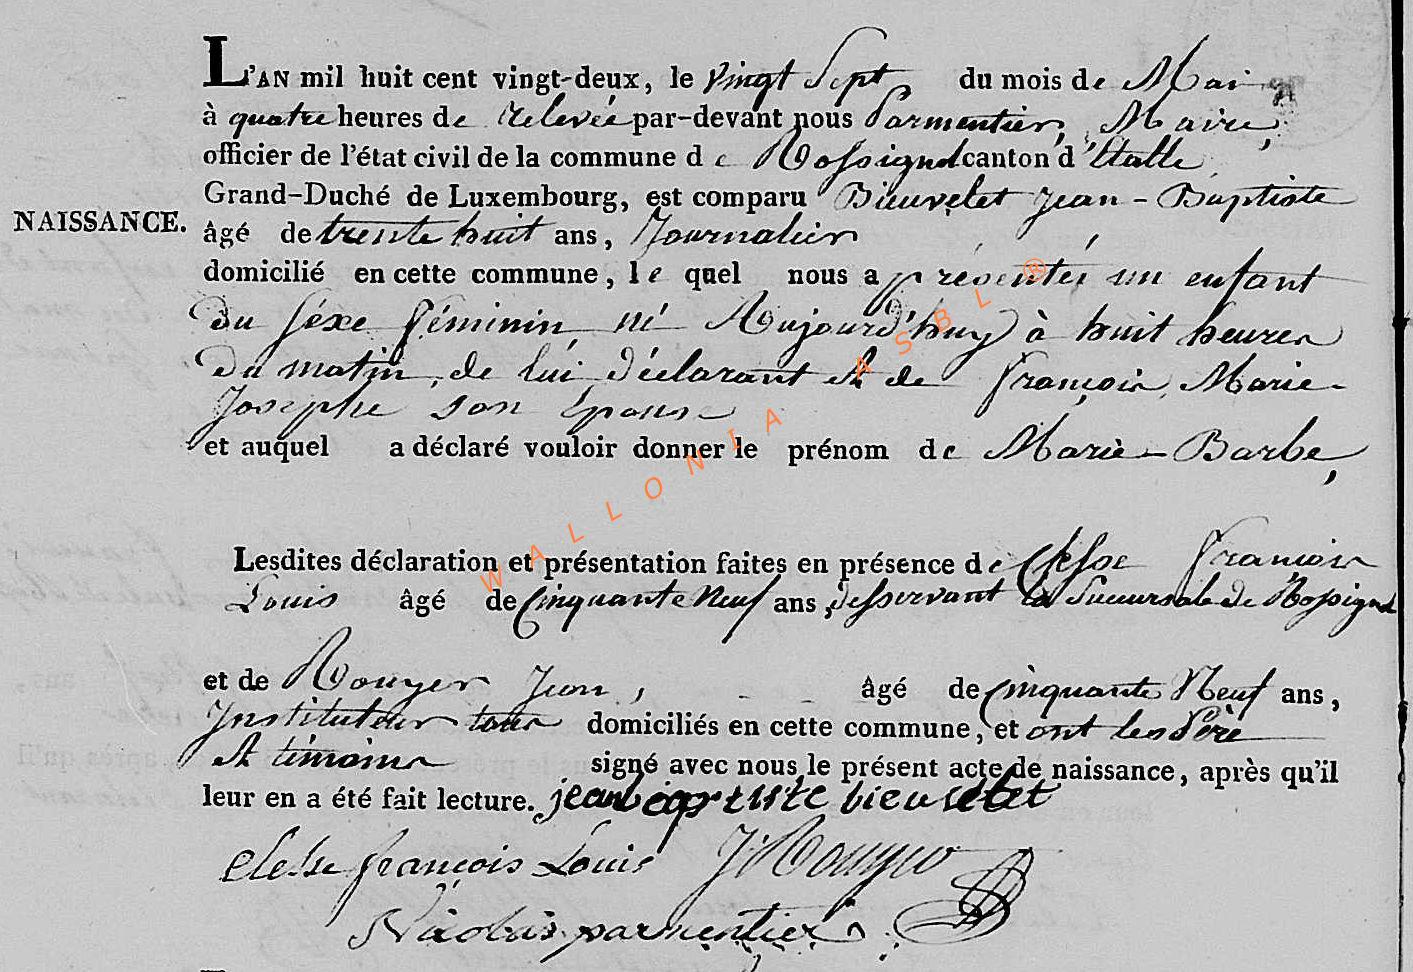 L'AN mil huit cent vingt-deux, le vingt Sept du mois de Mai
à quatre heures de relevée par-devant nous Parmentier, Maire,
officier de l'état civil de la commune de Rossignol canton d'Etalle
Grand-Duché de Luxembourg, est comparu Bieuvelet Jean-Baptiste
NAISSANCE.
âgé de trente huit ans, Journalier
domicilié en cette commune, le quel nous a présentés un enfant
du séxe féminin, né Aujourd'huy à huit heures
du matin, de lui déclarant et de François, Marie-
Josephe son Epouse
et auquel a déclaré vouloir donner le prénom de Marie-Barbe,
Lesdites déclaration et présentation faites en présence de François
Louis âgé de Cinquante Neuf ans, desservant la Succursale de Rossignol
et de Rouyer Jean, âgé de cinquante Neuf ans,
Instituteur tous domiciliés en cette commune, et ont les Père
et témoins signé avec nous le présent acte de naissance, après qu'il
leur en a été fait lecture. jean baptiste bieuvelet
françois Louis J Rouyer
Nicolas parmentier
WALLONIA ASBL ®